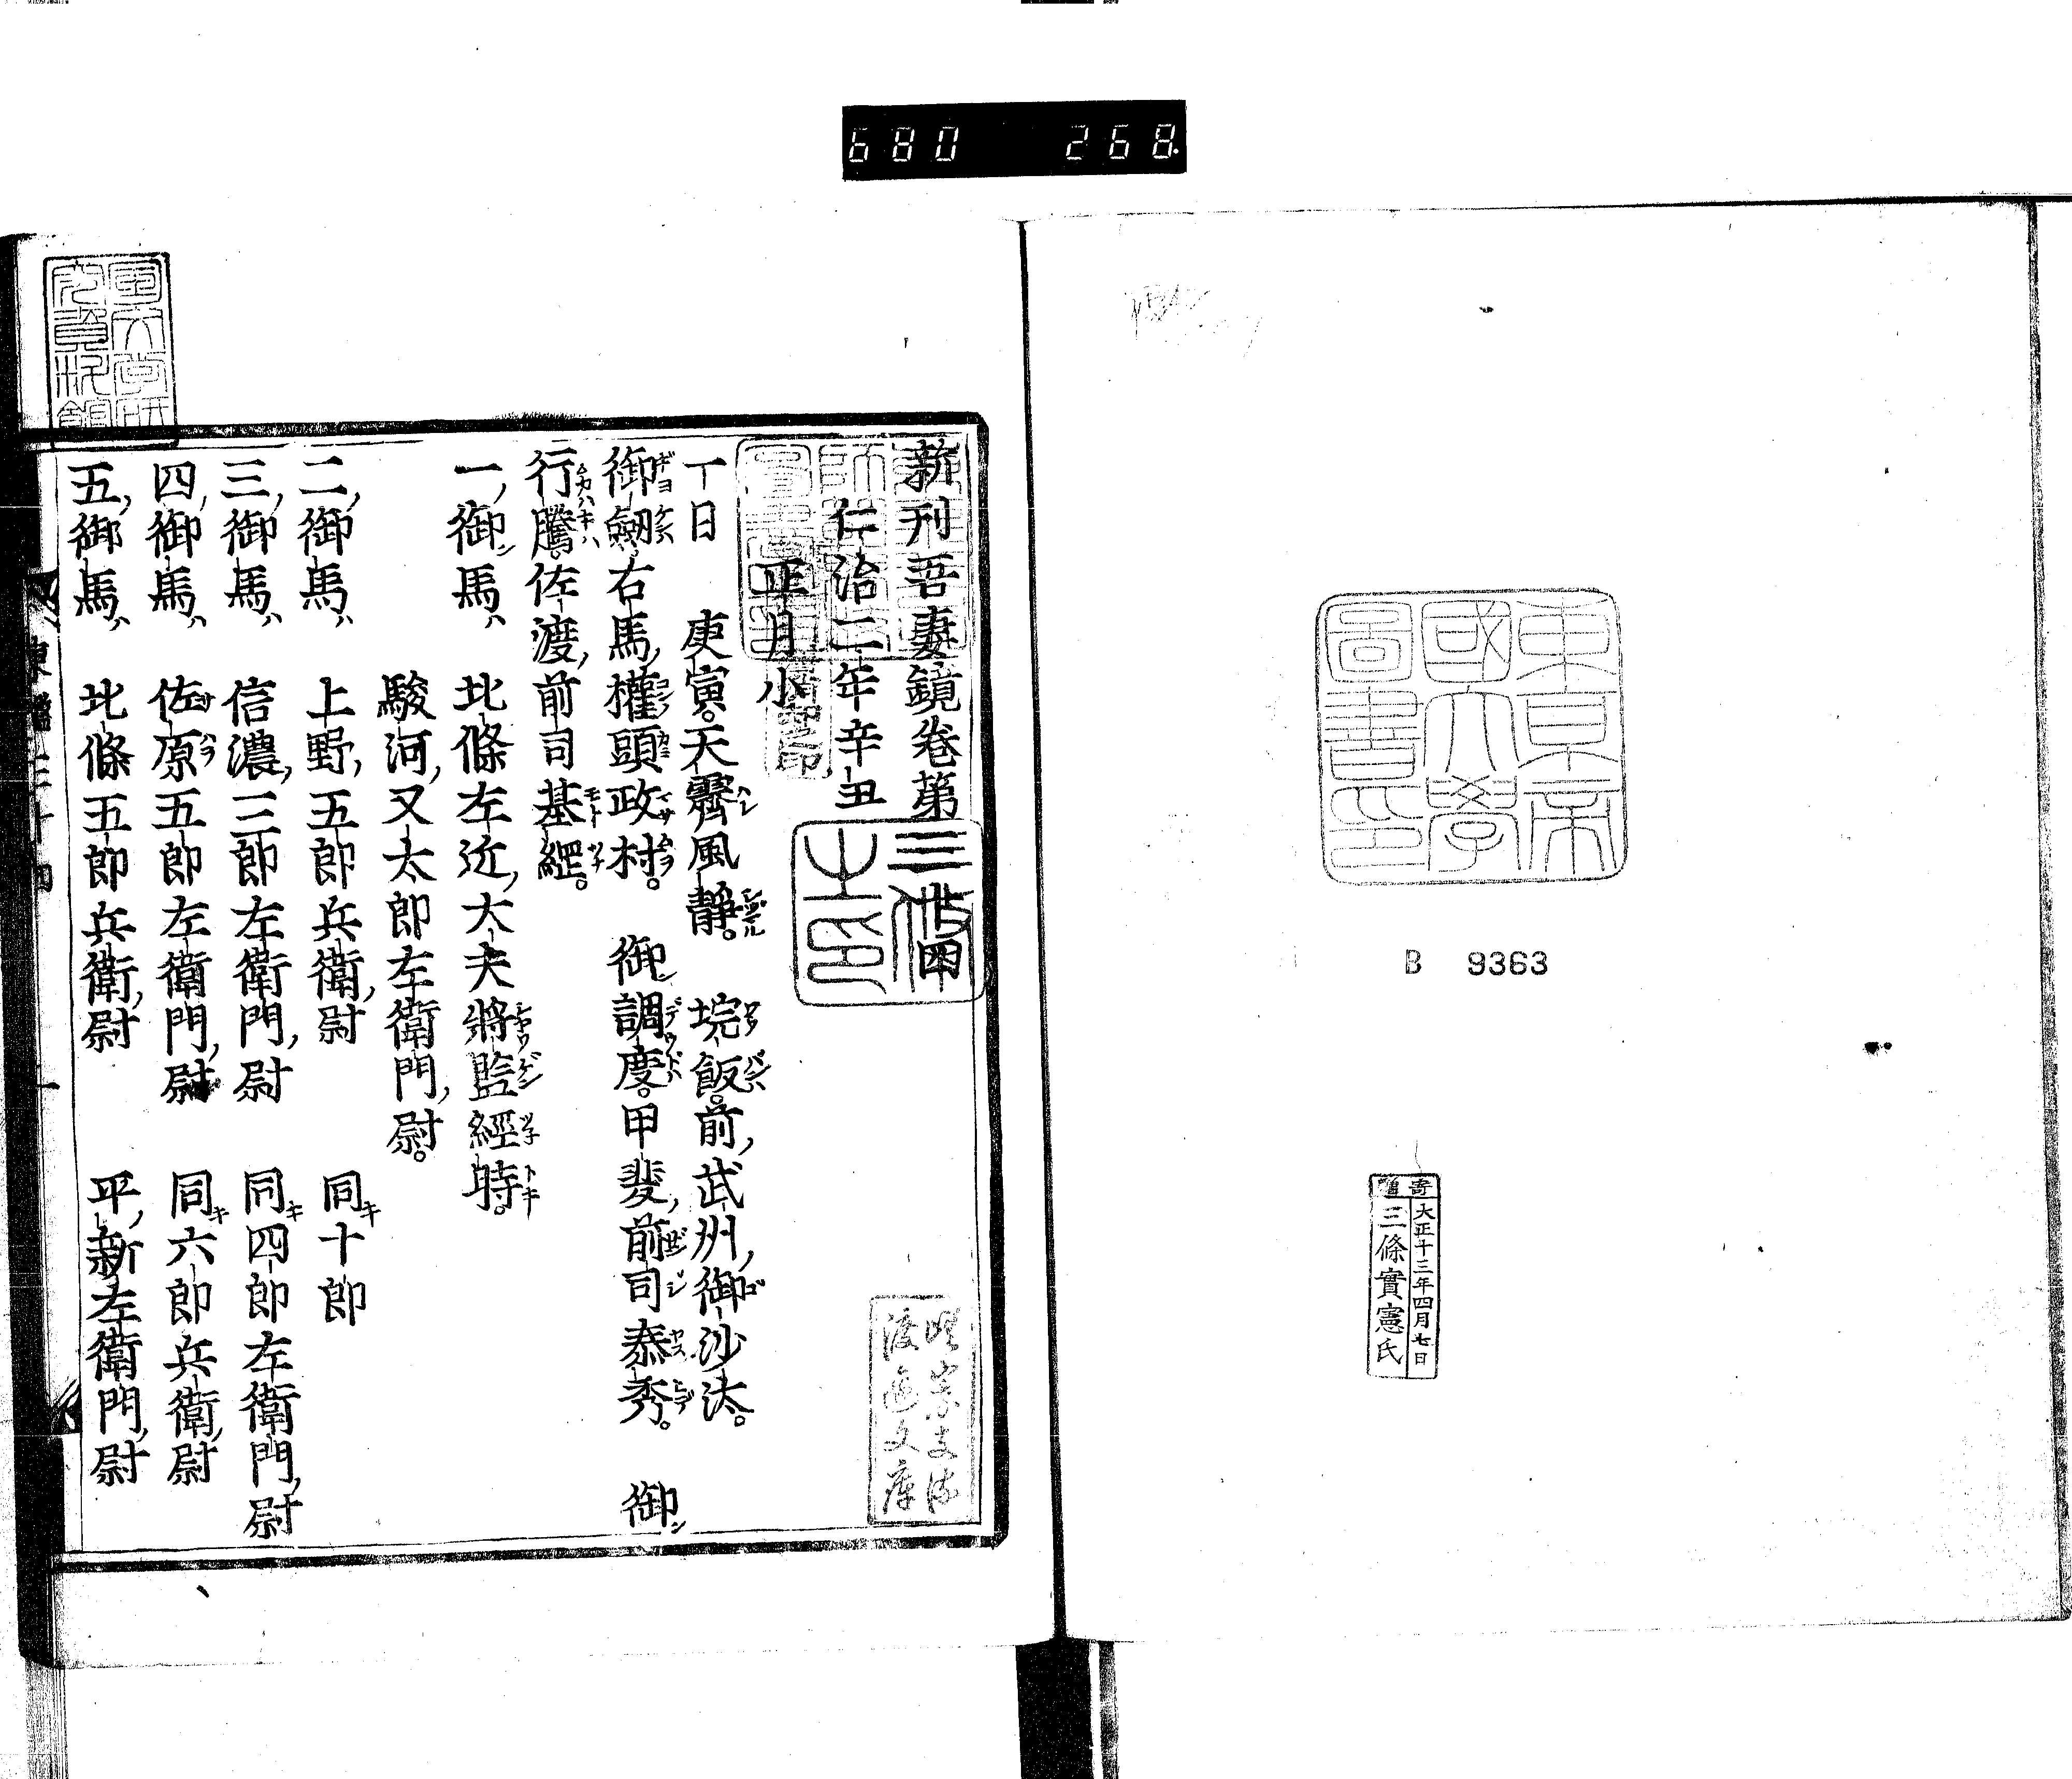 680 268
東京帝
國大學
圖書印
B 9363
寄贈
大正十三年四月七日
三條實憲氏
新刊吾妻鏡卷第三十四
仁治二年辛丑
正月小
丁日 庚寅。天霽風靜。 垸飯。前武州御沙汰。
御劔。右馬權頭政村。 御調度。甲斐前司泰秀。 御
行騰。佐渡前司基綱。
一御馬 北條左近大夫將監經時。
駿河又太郎左衛門尉。
二御馬 上野五郎兵衛尉 同十郎
三御馬 信濃三郎左衛門尉 同四郎左衛門尉
四御馬 佐原五郎左衛門尉 同六郎兵衛尉
五御馬 北條五郎兵衛尉 平新左衛門尉
東鑑三十四 一